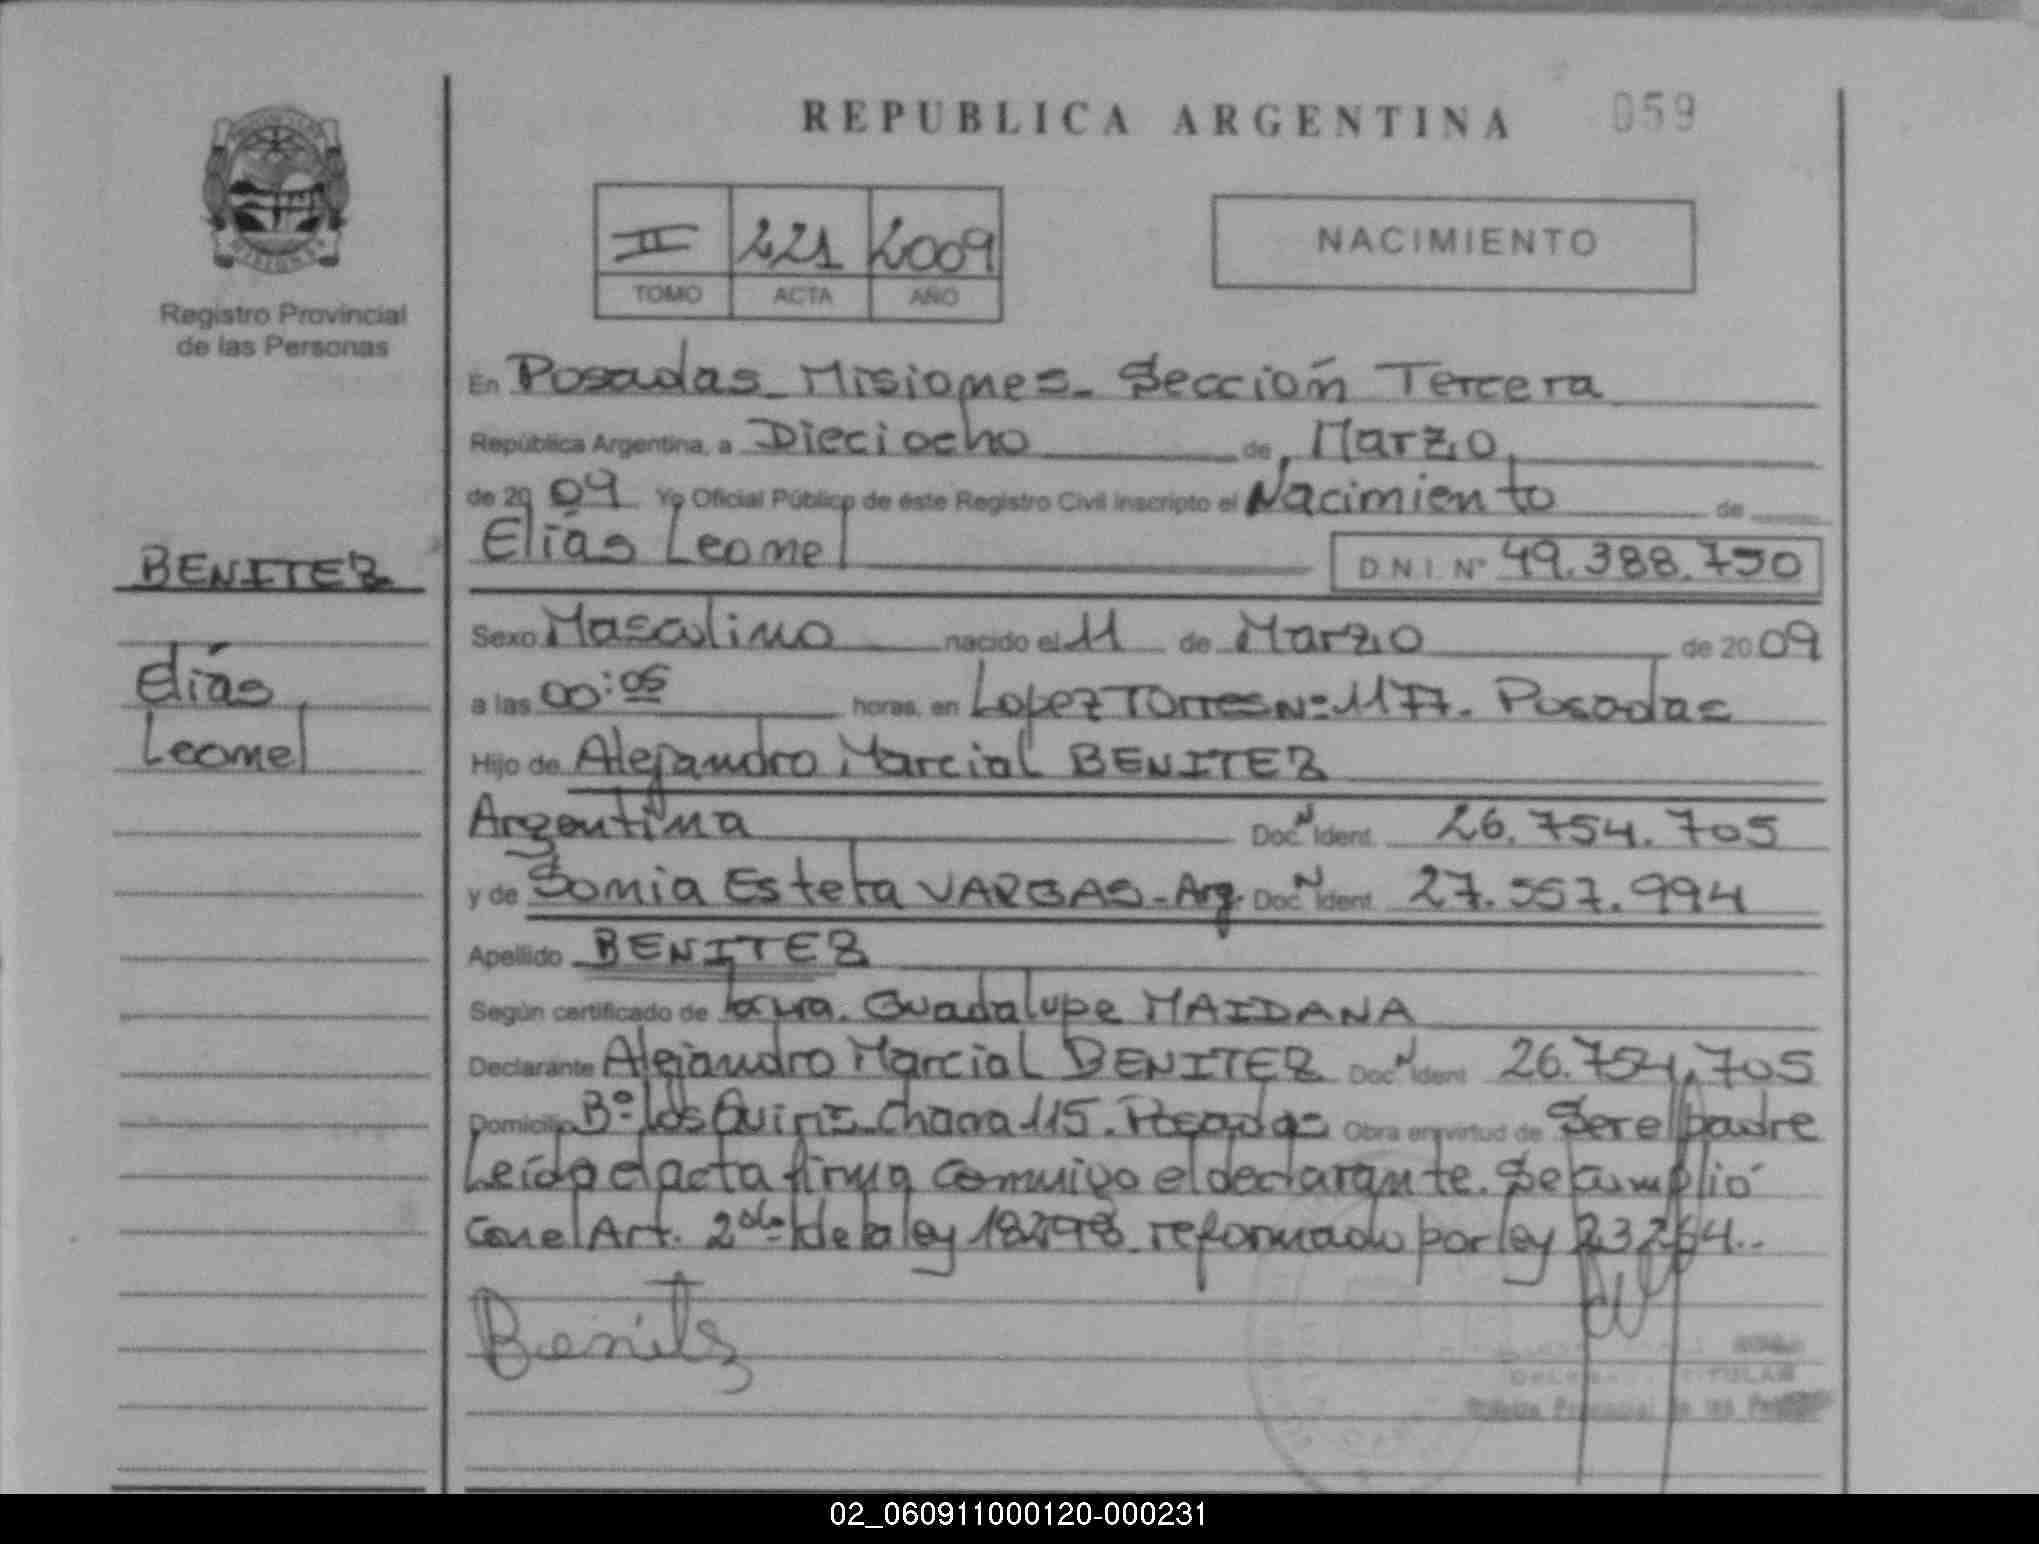 REPUBLICA ARGENTINA 059
NACIMIENTO
II 221 2009
TOMO ACTA AÑO
Registro Provincial
de las Personas
En Posadas - Misiones - Sección Tercera
República Argentina, a Dieciocho de Marzo
de 2009 Yo Oficial Público de éste Registro Civil inscripto el Nacimiento de
Elías Leonel D.N.I. Nº 49.388.750
BENITEZ
Elías
Leonel
Sexo Masculino nacido el 11 de Marzo de 2009
a las 00:05 horas, en Lopez Torres Nº 1177. Posadas
Hijo de Alejandro Marcial BENITEZ
Argentina Doc. N Ident. 26.754.705
y de Sonia Estela VARGAS - Arg. Doc. N Ident. 27.557.994
Apellido BENITEZ
Según certificado de Guadalupe MAIDANA
Declarante Alejandro Marcial BENITEZ Doc. N Ident. 26.754.705
Domicilio Bº Los Chacra 115. Posadas Obra en virtud de Ser el padre
Leída el acta firma conmigo el declarante. Se cumplió
con el Art. 2do de la ley 18248 reformado por ley 23264..
Benitez
TITULAR
Provincial de las
02_060911000120-000231